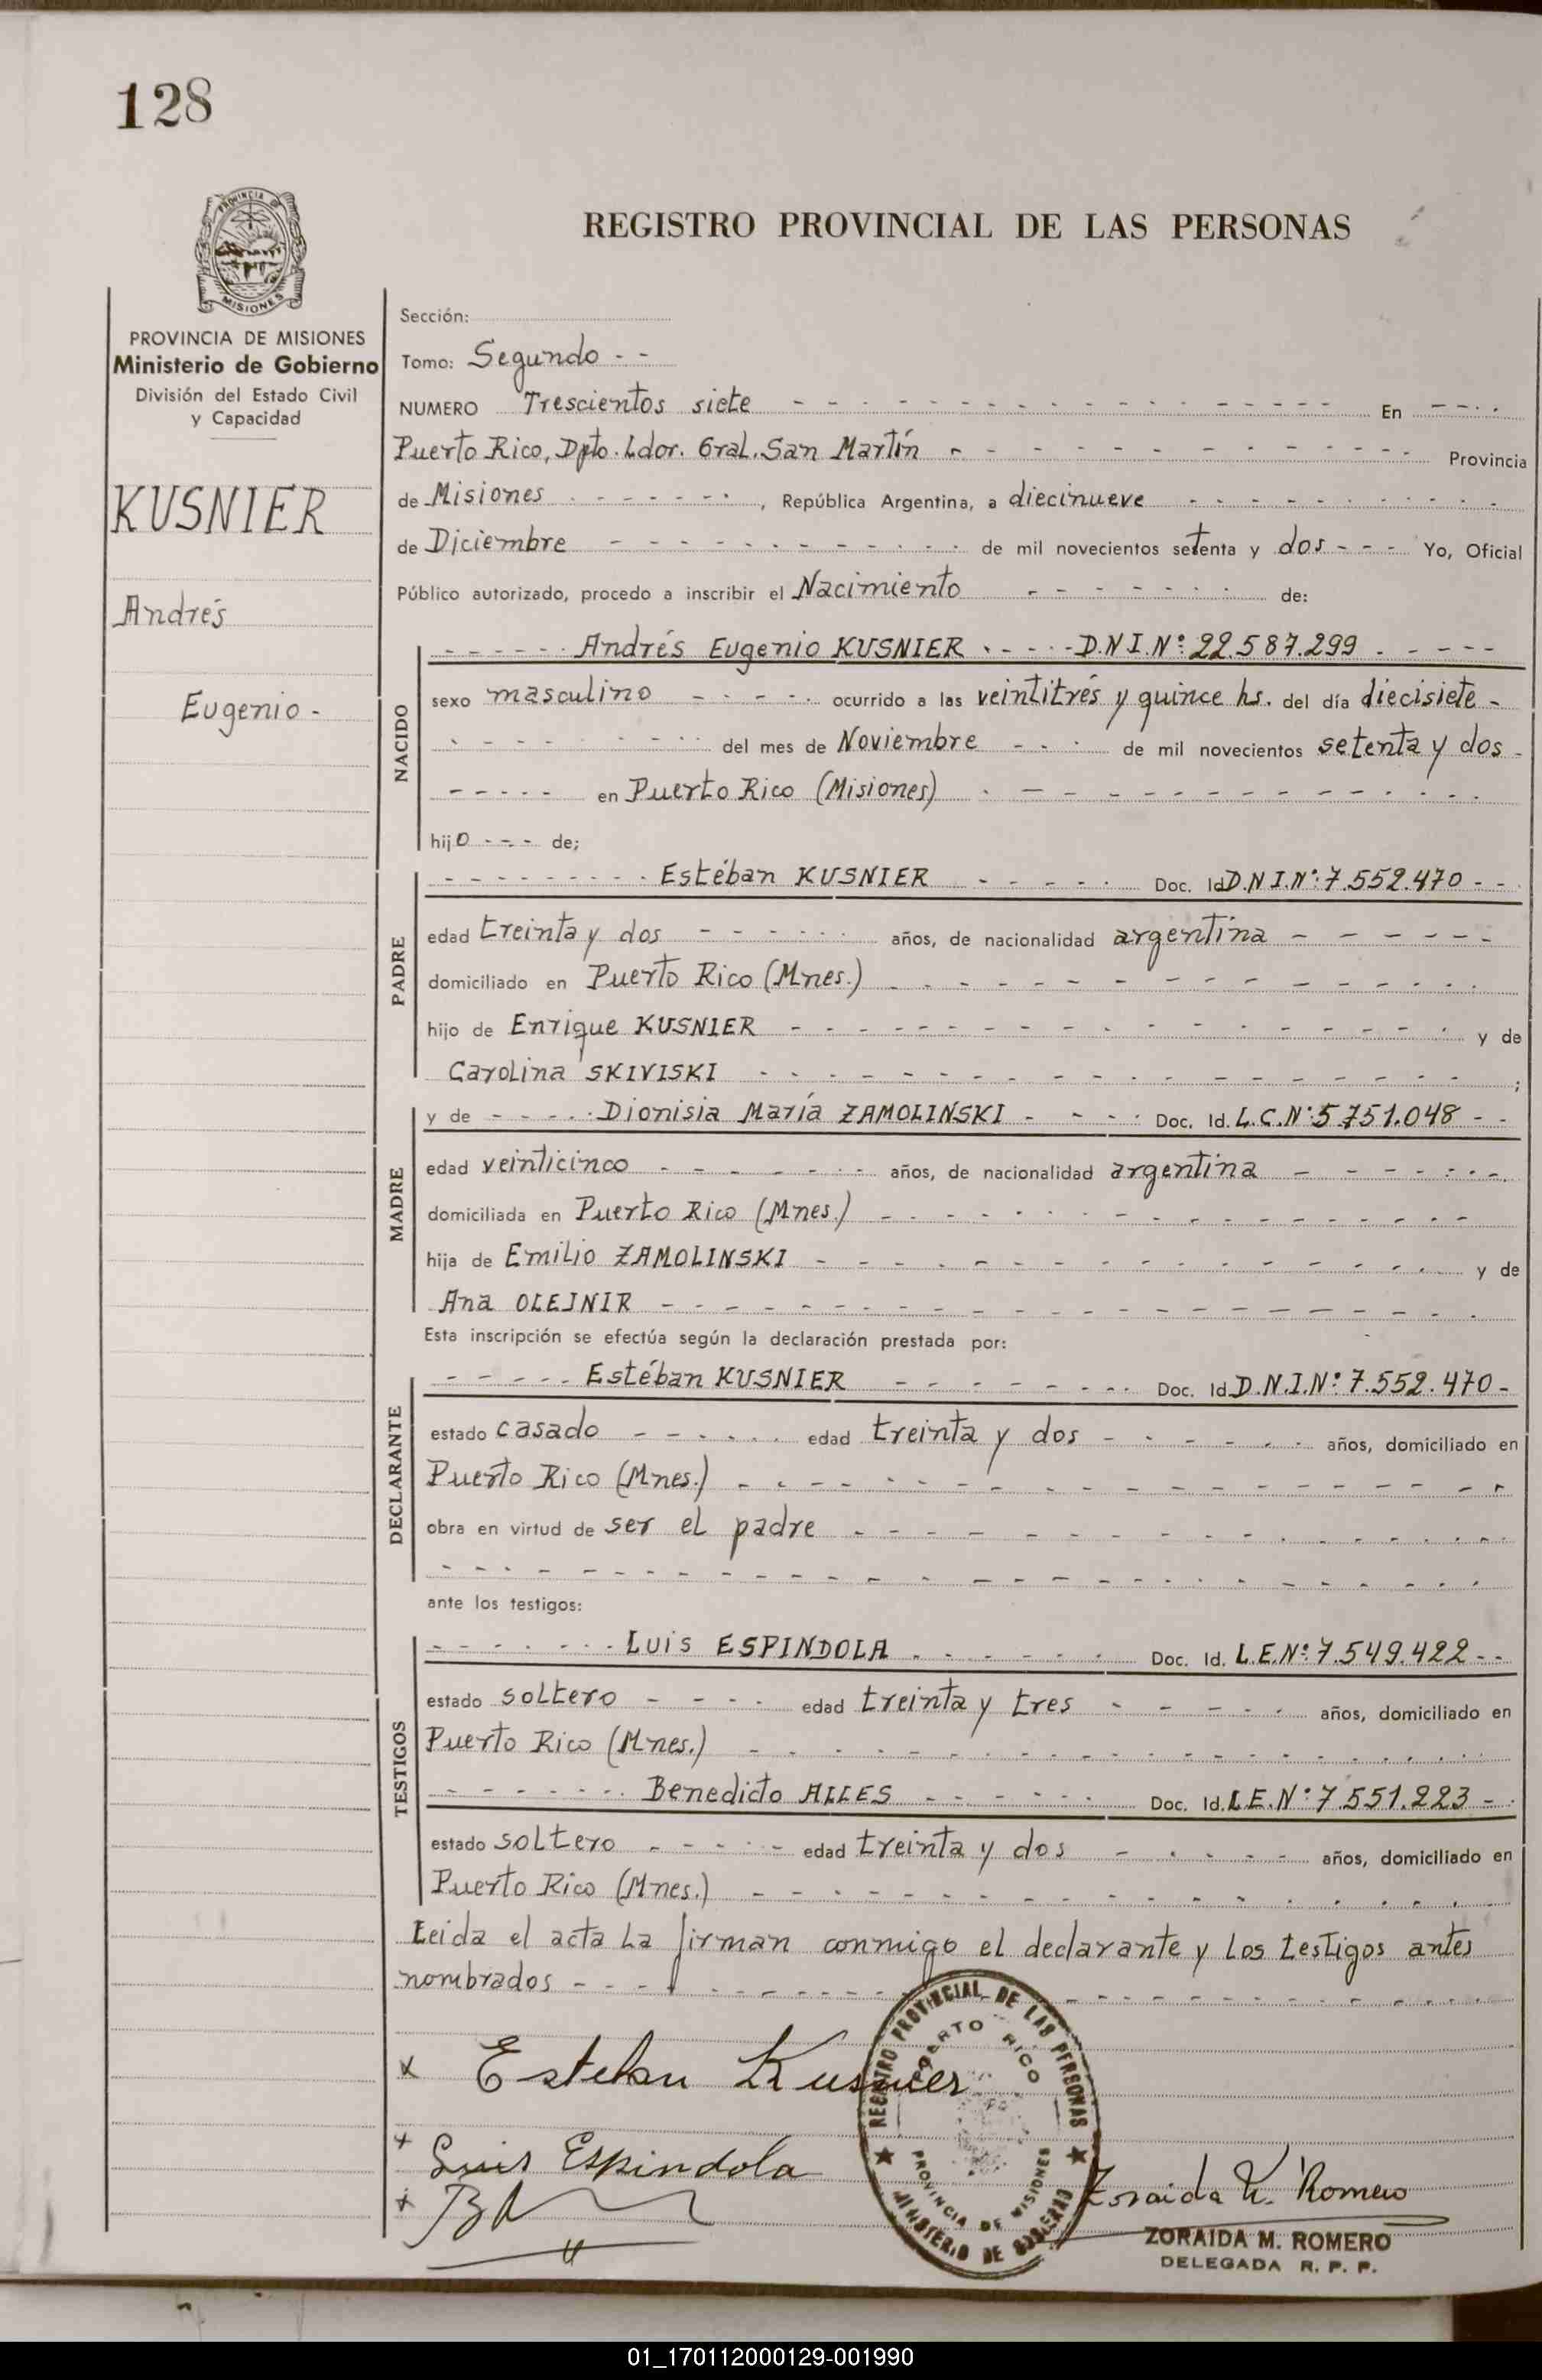 128
PROVINCIA DE
MISIONES
REGISTRO PROVINCIAL DE LAS PERSONAS
PROVINCIA DE MISIONES
Ministerio de Gobierno
División del Estado Civil
y Capacidad
KUSNIER
Andrés
Eugenio -
Sección:
Tomo: Segundo - -
NUMERO Trescientos siete - - - En - - - -
Puerto Rico, Dpto. Ldor. Gral. San Martín - - - Provincia
de Misiones - - - , República Argentina, a diecinueve - - -
de Diciembre - - - de mil novecientos setenta y dos - - - Yo, Oficial
Público autorizado, procedo a inscribir el Nacimiento - - - de:
NACIDO
- - - Andrés Eugenio KUSNIER - - - D.N.I.Nº: 22.587.299 - - -
sexo masculino - - - ocurrido a las veintitrés y quince hs. del día diecisiete -
- - - del mes de Noviembre - - - de mil novecientos setenta y dos -
- - - en Puerto Rico (Misiones) - - -
hijo - - - de;
PADRE
- - - Estéban KUSNIER - - - Doc. Id D.N.I.Nº: 7.552.470 - -
edad treinta y dos - - - años, de nacionalidad argentina - - -
domiciliado en Puerto Rico (Mnes.) - - -
hijo de Enrique KUSNIER - - - y de
Carolina SKIVISKI - - - ;
MADRE
y de - - - Dionisia María ZAMOLINSKI - - - Doc. Id. L.C.Nº 5.751.048 - -
edad veinticinco - - - años, de nacionalidad argentina - - -
domiciliada en Puerto Rico (Mnes.) - - -
hija de Emilio ZAMOLINSKI - - - y de
Ana OLEJNIR - - -
Esta inscripción se efectúa según la declaración prestada por:
DECLARANTE
- - - Estéban KUSNIER - - - Doc. Id D.N.I.Nº: 7.552.470 -
estado casado - - - edad treinta y dos - - - años, domiciliado en
Puerto Rico (Mnes.) - - -
obra en virtud de ser el padre - - -
- - -
ante los testigos:
TESTIGOS
- - - Luis ESPINDOLA - - - Doc. Id. L.E.Nº: 7.549.422 - -
estado soltero - - - edad treinta y tres - - - años, domiciliado en
Puerto Rico (Mnes.) - - -
- - - Benedicto ALLES - - - Doc. Id. L.E.Nº: 7.551.223 - -
estado soltero - - - edad treinta y dos - - - años, domiciliado en
Puerto Rico (Mnes.) - - -
Leida el acta la firman conmigo el declarante y los testigos antes
nombrados - - -
x Esteban Kusnier
x Luis Espindola
x
REGISTRO PROVINCIAL DE LAS PERSONAS
PUERTO RICO
PROVINCIA DE MISIONES
MINISTERIO DE GOBIERNO
Zoraida M. Romero
ZORAIDA M. ROMERO
DELEGADA R. P. P.
01_170112000129-001990